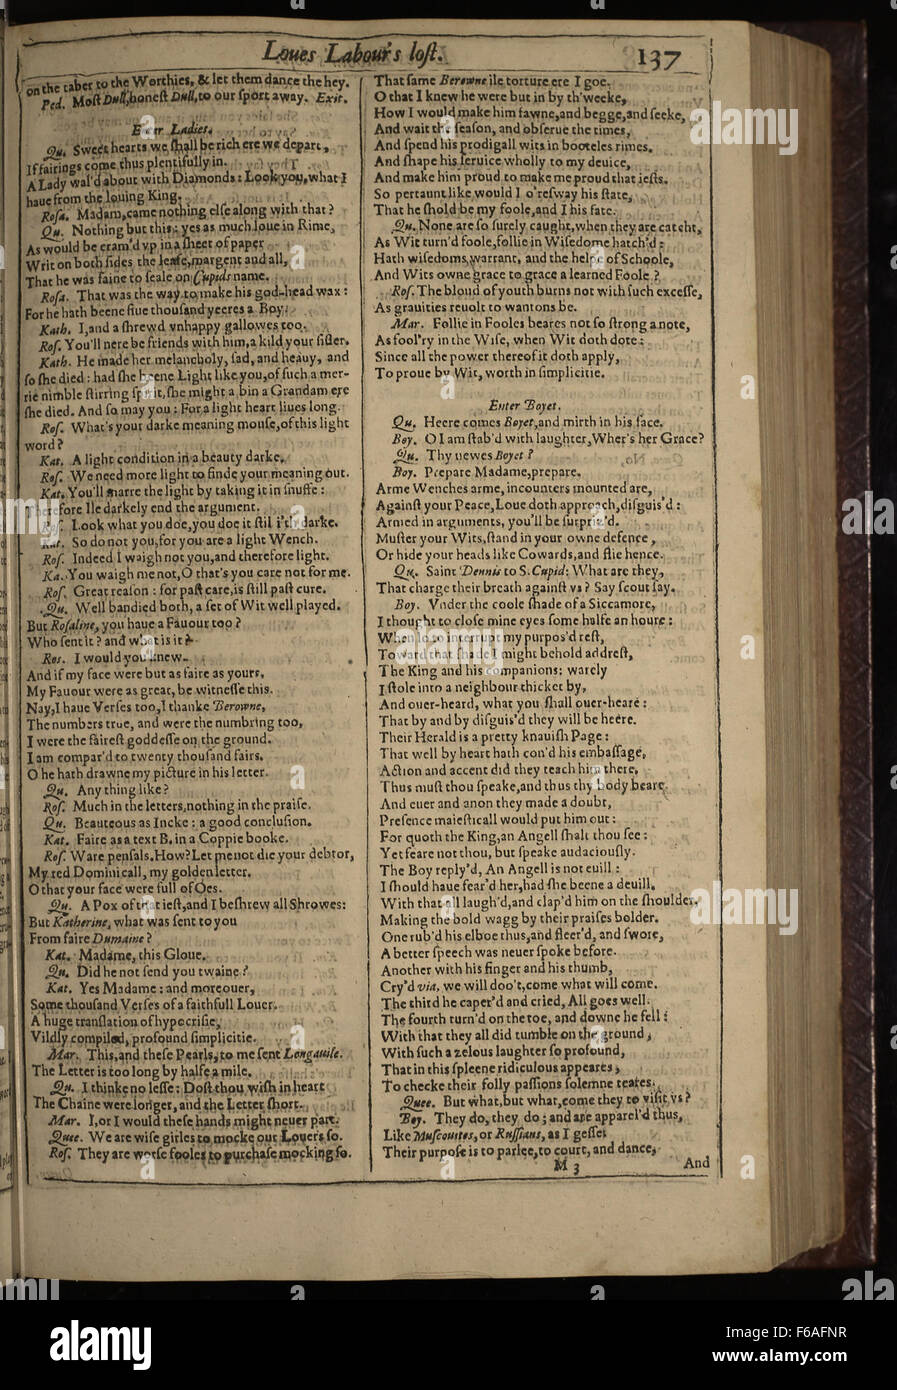 Loues Labour's lost. 137
on the taber to the Worthies, & let them dance the hey.
Ped. Most Dull, honest Dull, to our sport away. Exit.
Enter Ladies.
Qu. Sweet hearts we ſhall be rich ere we depart,
If fairings come thus plentifully in.
A Lady wal'd about with Diamonds: Look you, what I
haue from the louing King.
Roſa. Madam, came nothing elſe along with that?
Qu. Nothing but this: yes as much loue in Rime,
As would be cram'd vp in a ſheet of paper
Writ on both ſides the leafe, margent and all,
That he was faine to ſeale on Cupids name.
Roſa. That was the way to make his god-head wax:
For he hath beene fiue thouſand yeeres a Boy.
Kath. I, and a ſhrewd vnhappy gallowes too.
Roſ. You'll nere be friends with him, a kild your ſiſter.
Kath. He made her melancholy, ſad, and heauy, and
ſo ſhe died: had ſhe beene Light like you, of ſuch a mer-
rie nimble ſtirring ſpirit, ſhe might a bin a Grandam ere
ſhe died. And ſo may you: For a light heart liues long.
Roſ. What's your darke meaning mouſe, of this light
word?
Kat. A light condition in a beauty darke.
Roſ. We need more light to finde your meaning out.
Kat. You'll marre the light by taking it in ſnuffe:
Therefore Ile darkely end the argument.
Roſ. Look what you doe, you doe it ſtil i'th darke.
Kat. So do not you, for you are a light Wench.
Roſ. Indeed I waigh not you, and therefore light.
Ka. You waigh me not, O that's you care not for me.
Roſ. Great reaſon: for paſt care, is ſtill paſt cure.
Qu. Well bandied both, a ſet of Wit well played.
But Roſaline, you haue a Fauour too?
Who ſent it? and what is it?
Ros. I would you knew.
And if my face were but as faire as yours,
My Fauour were as great, be witneſſe this.
Nay, I haue Verſes too, I thanke Berowne,
The numbers true, and were the numbring too,
I were the faireſt goddeſſe on the ground.
I am compar'd to twenty thouſand fairs.
O he hath drawne my picture in his letter.
Qu. Any thing like?
Roſ. Much in the letters, nothing in the praiſe.
Qu. Beauteous as Incke: a good concluſion.
Kat. Faire as a text B. in a Coppie booke.
Roſ. Ware penſals. How? Let me not die your debtor,
My red Dominicall, my golden letter.
O that your face were full of Oes.
Qu. A Pox of that ieſt, and I beſhrew all Shrowes:
But Katherine, what was ſent to you
From faire Dumaine?
Kat. Madame, this Gloue.
Qu. Did he not ſend you twaine?
Kat. Yes Madame: and moreouer,
Some thouſand Verſes of a faithfull Louer.
A huge tranſlation of hypocriſie,
Vildly compiled, profound ſimplicitie.
Mar. This, and theſe Pearls, to me ſent Longauile.
The Letter is too long by halfe a mile.
Qu. I thinke no leſſe: Doſt thou wiſh in heart
The Chaine were longer, and the Letter ſhort.
Mar. I, or I would theſe hands might neuer part.
Quee. We are wiſe girles to mocke our Louers ſo.
Roſ. They are worſe fooles to purchaſe mocking ſo.
That ſame Berowne ile torture ere I goe.
O that I knew he were but in by th'weeke,
How I would make him fawne, and begge, and ſeeke,
And wait the ſeaſon, and obſerue the times,
And ſpend his prodigall wits in booteles rimes,
And ſhape his ſeruice wholly to my deuice,
And make him proud to make me proud that ieſts.
So pertaunt like would I o'reſway his ſtate,
That he ſhold be my foole, and I his fate.
Qu. None are ſo ſurely caught, when they are catcht,
As Wit turn'd foole, follie in Wiſedome hatch'd:
Hath wiſedoms warrant, and the helpe of Schoole,
And Wits owne grace to grace a learned Foole?
Roſ. The bloud of youth burns not with ſuch exceſſe,
As grauities reuolt to wantons be.
Mar. Follie in Fooles beares not ſo ſtrong a note,
As fool'ry in the Wiſe, when Wit doth dote:
Since all the power thereof it doth apply,
To proue by Wit, worth in ſimplicitie.
Enter Boyet.
Qu. Heere comes Boyet, and mirth in his face.
Boy. O I am ſtab'd with laughter, Wher's her Grace?
Qu. Thy newes Boyet?
Boy. Prepare Madame, prepare.
Arme Wenches arme, incounters mounted are,
Againſt your Peace, Loue doth approach, diſguis'd:
Armed in arguments, you'll be ſurpriz'd.
Muſter your Wits, ſtand in your owne defence,
Or hide your heads like Cowards, and flie hence.
Qu. Saint Dennis to S. Cupid: What are they,
That charge their breath againſt vs? Say ſcout ſay.
Boy. Vnder the coole ſhade of a Siccamore,
I thought to cloſe mine eyes ſome halfe an houre:
When lo to interrupt my purpos'd reſt,
Toward that ſhade I might behold addreſt,
The King and his companions: warely
I ſtole into a neighbour thicket by,
And ouer-heard, what you ſhall ouer-heare:
That by and by diſguis'd they will be heere.
Their Herald is a pretty knauiſh Page:
That well by heart hath con'd his embaſſage,
Action and accent did they teach him there,
Thus muſt thou ſpeake, and thus thy body beare.
And euer and anon they made a doubt,
Preſence maieſticall would put him out:
For quoth the King, an Angell ſhalt thou ſee:
Yet feare not thou, but ſpeake audaciouſly.
The Boy reply'd, An Angell is not euill:
I ſhould haue fear'd her, had ſhe beene a deuill.
With that all laugh'd, and clap'd him on the ſhoulder,
Making the bold wagg by their praiſes bolder.
One rub'd his elboe thus, and fleer'd, and ſwore,
A better ſpeech was neuer ſpoke before.
Another with his finger and his thumb,
Cry'd via, we will doo't, come what will come.
The third he caper'd and cried, All goes well.
The fourth turn'd on the toe, and downe he fell:
With that they all did tumble on the ground,
With ſuch a zelous laughter ſo profound,
That in this ſpleene ridiculous appeares,
To checke their folly paſſions ſolemne teares.
Quee. But what, but what, come they to viſit vs?
Boy. They do, they do; and are apparel'd thus,
Like Muſcouites, or Ruſſians, as I geſſe.
Their purpoſe is to parlee, to court, and dance,
M 3 And
alamy
Image ID: F6AFNR
www.alamy.com